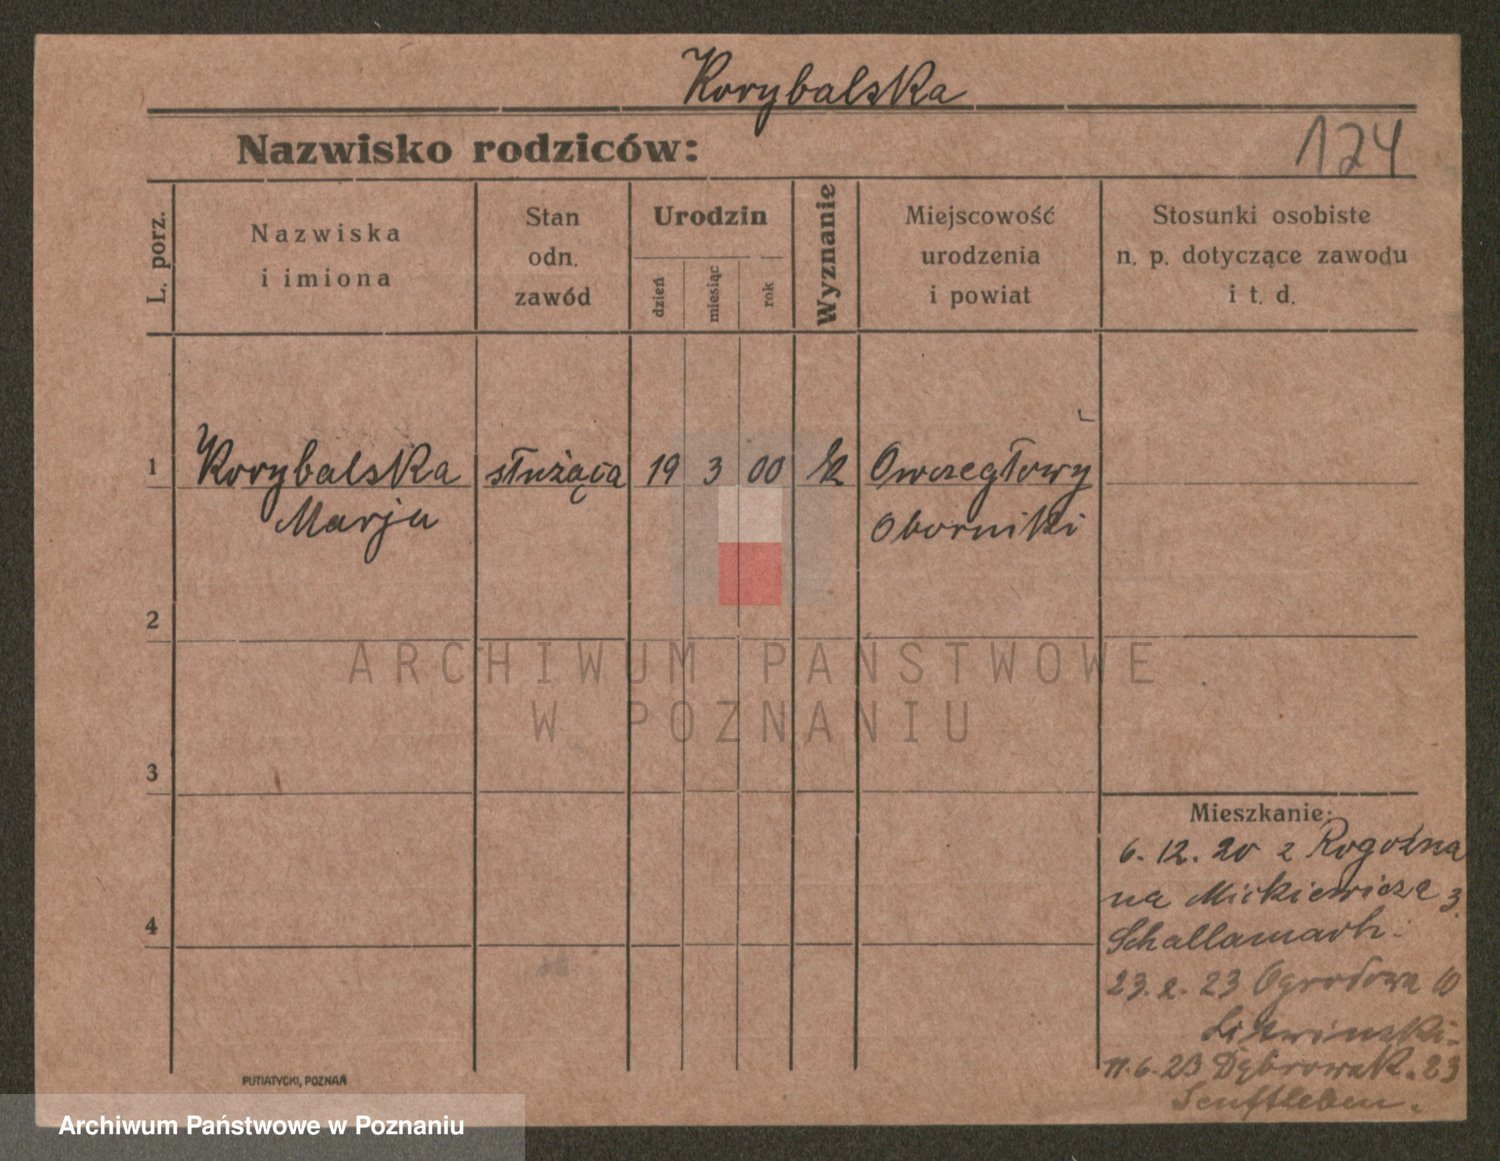 Korybalska
Nazwisko rodziców:
124
L. porz.
Nazwiska
i imiona
Stan
odn.
zawód
Urodzin
dzień
miesiąc
rok
Wyznanie
Miejscowość
urodzenia
i powiat
Stosunki osobiste
n. p. dotyczące zawodu
i t. d.
1
Korybalska
Marja
służąca
19
3
00
Owczegłowy
Oborniki
2
3
4
Mieszkanie:
6.12.20 z Rogoźna
na Mickiewicza 3.
Schallamach.
23.2.23 Ogrodowa 10
Litwinski.
11.6.23 Dąbrowsk. 23
Senftleben.
PUTIATYCKI, POZNAŃ
ARCHIWUM PAŃSTWOWE
W POZNANIU
Archiwum Państwowe w Poznaniu